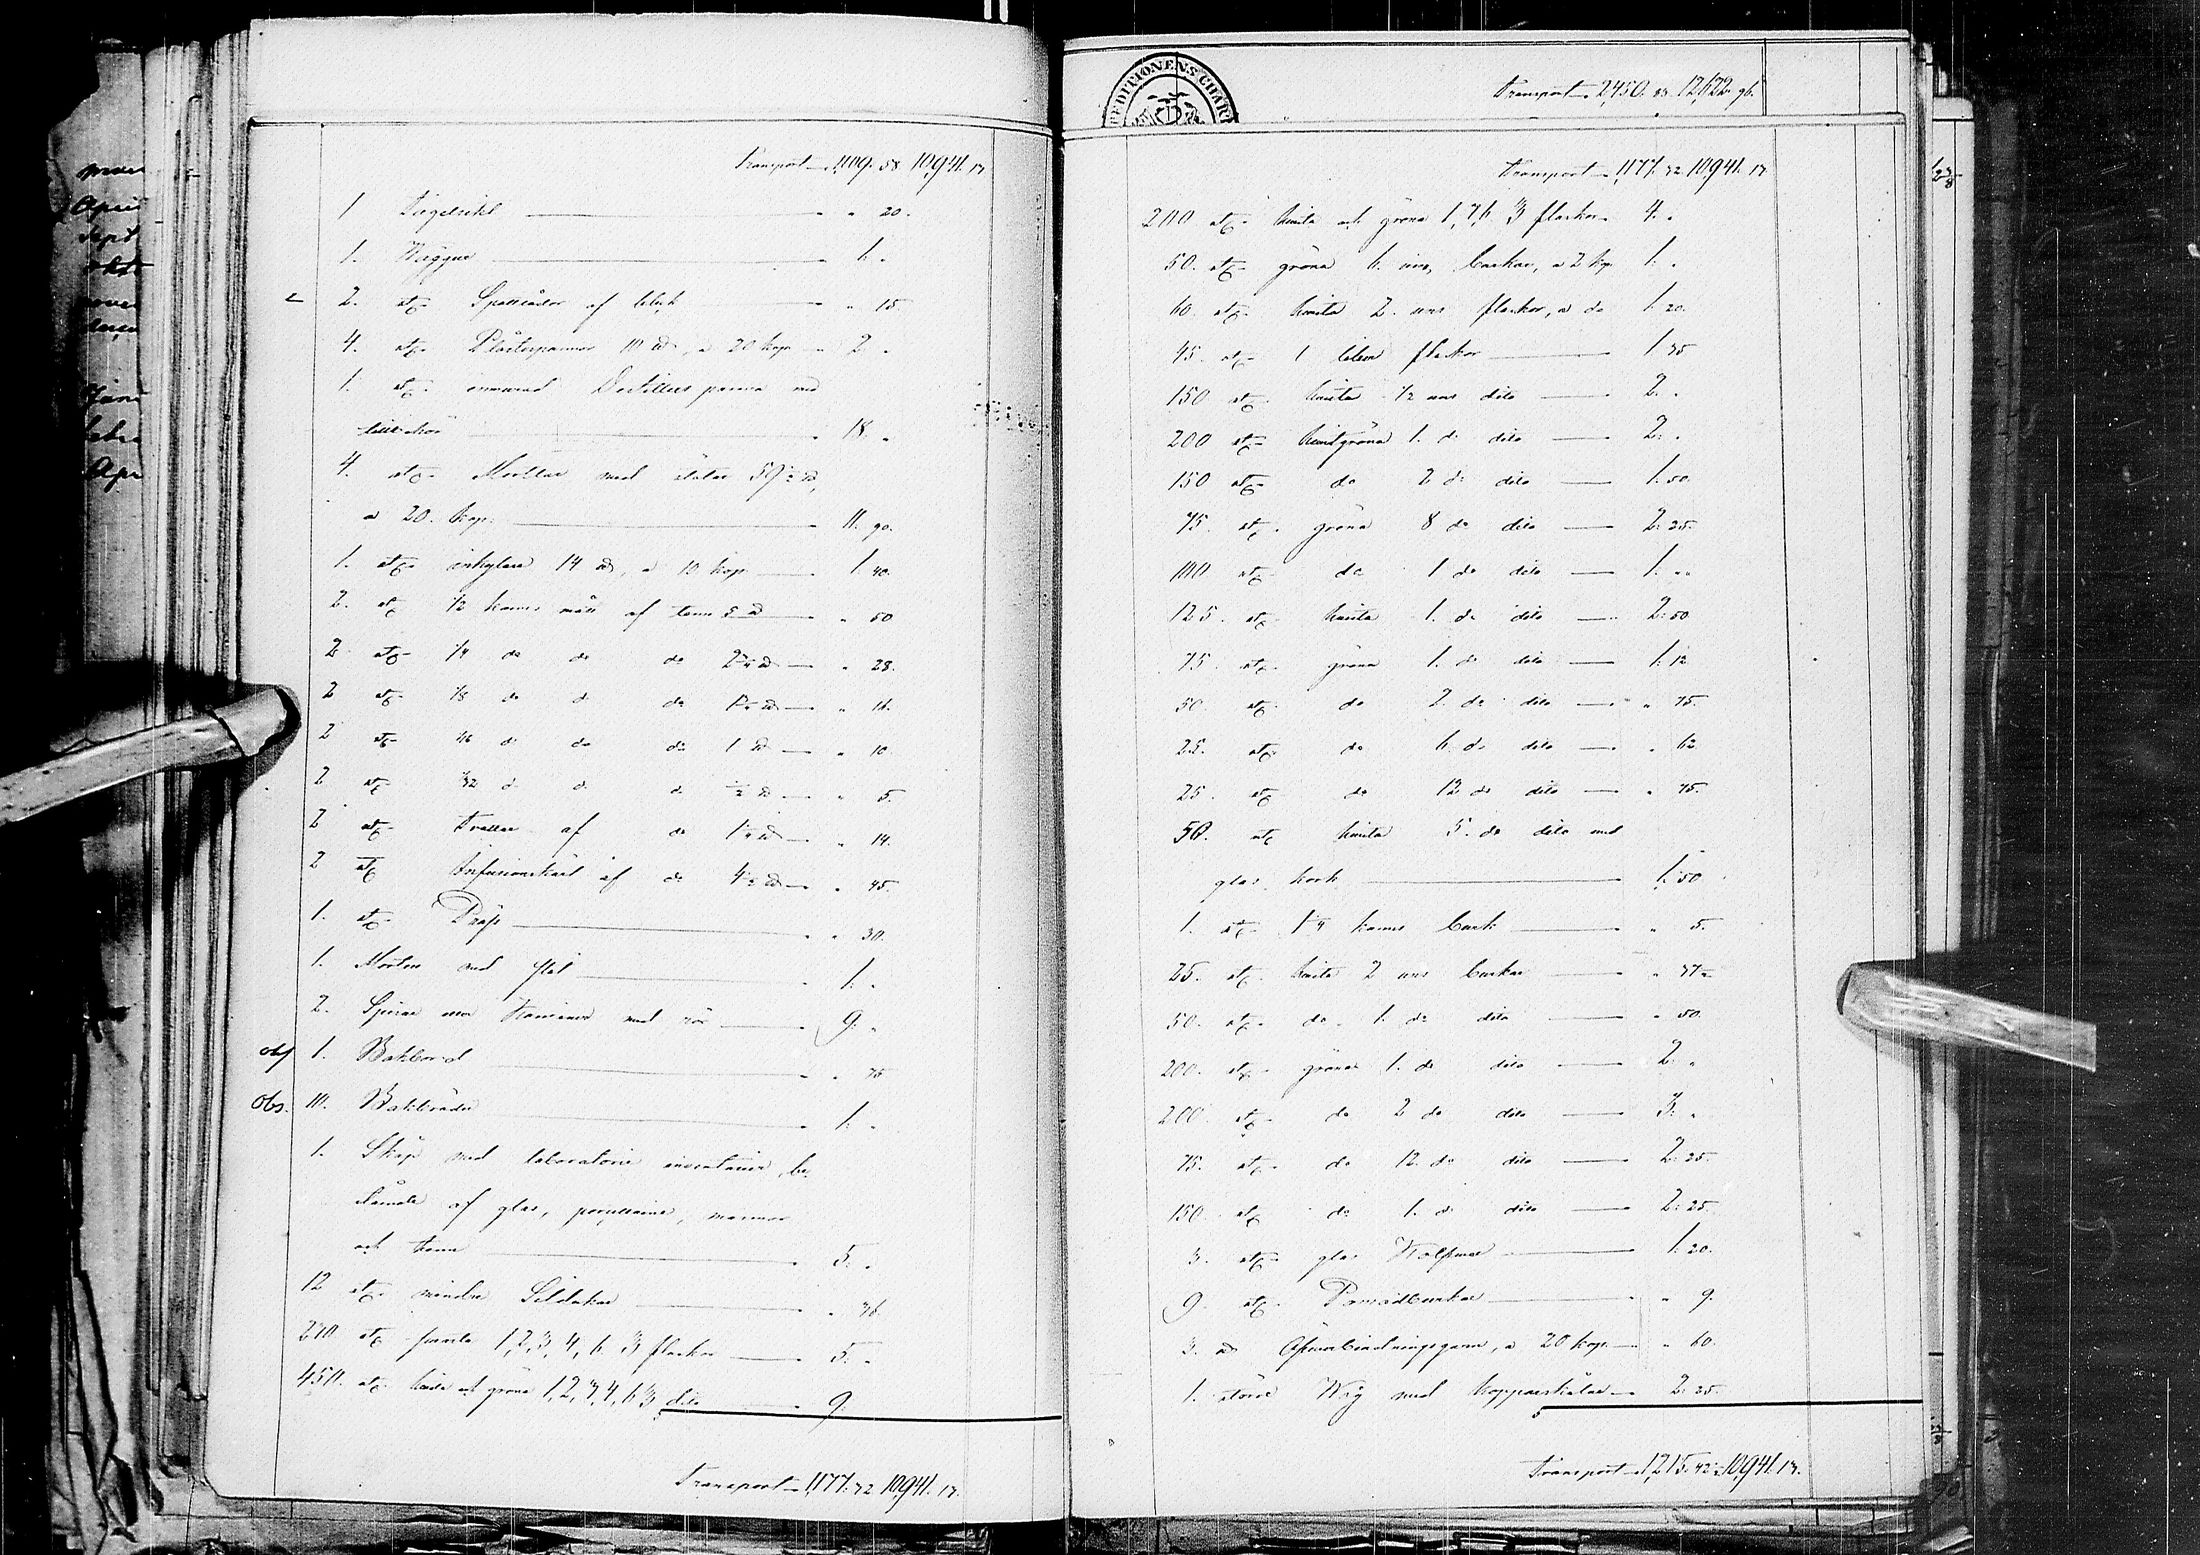 Transport 1,109. 58 10,941. 17
1 Tegelsikt " 20.
1. Vagga 1. "
2. st. af bleck " 15.
4. st. Plåsterpannor 10 ℔, a 20 kop 2. "
1. st. inmurad Destiller panna med
tillbehör 18. "
4. st. Mortlar med stötar 59½ ℔,
a 20. kop. 11. 90.
1. st. inkylare 14 ℔, a 10 kop 1. 40.
2. st. ½ kanns mått af tenn 5 ℔ " 50
2 st. ¼ do do do 2¾ ℔ " 28.
2 st. ⅛ do do do 1½ ℔ " 16.
2 st. 1/16 do do do 1 ℔ " 10.
2 st. 1/32 do do do ½ ℔ " 5.
2 st. Trattar af do 1¼ ℔ " 14.
2 st. Infusionskärl af do 4½ ℔ " 45.
1. st. " 30.
1. Mortel med stöt 1. "
2. med rör 9. "
obs 1. Bakbord " 75
Obs. 10. Bakbräden 1. "
1. Skåp med laboratorie inventarier, be-
stående af glas, porcellaine, marmor
och tenn 5. "
12 st. mindre Sildukar " 36.
210 st. 1, 2, 3, 4, 6 ℥ flaskor 5. "
450. st. hvita och gröna 1, 2, 3, 4, 6 ℥ dito 9.
Transport 1,177. 72 10,941. 17.
EDITIONENS CHAR
Transport 2,450. 83 12,622. 96.
Transport 1,177. 72 10,941. 17
200 st. hvita och gröna flaskor 4. "
50. st. gröna 6. uns burkar, a 2 kp. 1. "
60. st. hvita 2. uns flaskor, a do 1. 20.
45. st. 1 flaskor 1. 35
150 st. hvita ½ uns dito 2. "
200 st. halfgröna 1. do dito 2. "
150 st. do 2 do dito 1. 50.
75. st. gröna 8 do dito 2. 25.
100 st. do 1 do dito 1. "
125. st. hvita 1. do dito 2. 50
75. st. gröna 1. do dito 1. 12
50. st. do 2. do dito " 75.
25. st. do 6. do dito " 62
25. st. do 12 do dito " 75.
50. st. hvita 5. do dito med
glas kork 1. 50
1. st. 1¼ kanns burk " 5.
25. st. hvita 2 uns burkar " 37½
50. st. do 1. do dito " 50.
200. st. gröna 1. do dito 2. "
200 st. do 2 do dito 3. "
75. st. do 12 do dito 2. 25.
150 st. do 1. do dito 2. 25.
3. st. glas 1. 20.
9. st. Pomadburkar " 9.
3. ℔ Öfverbindningsgarn, a 20 kop. " 60.
1. större Våg med kopparskålar 2. 25.
Transport 1,215. 42½ 10,941. 17.